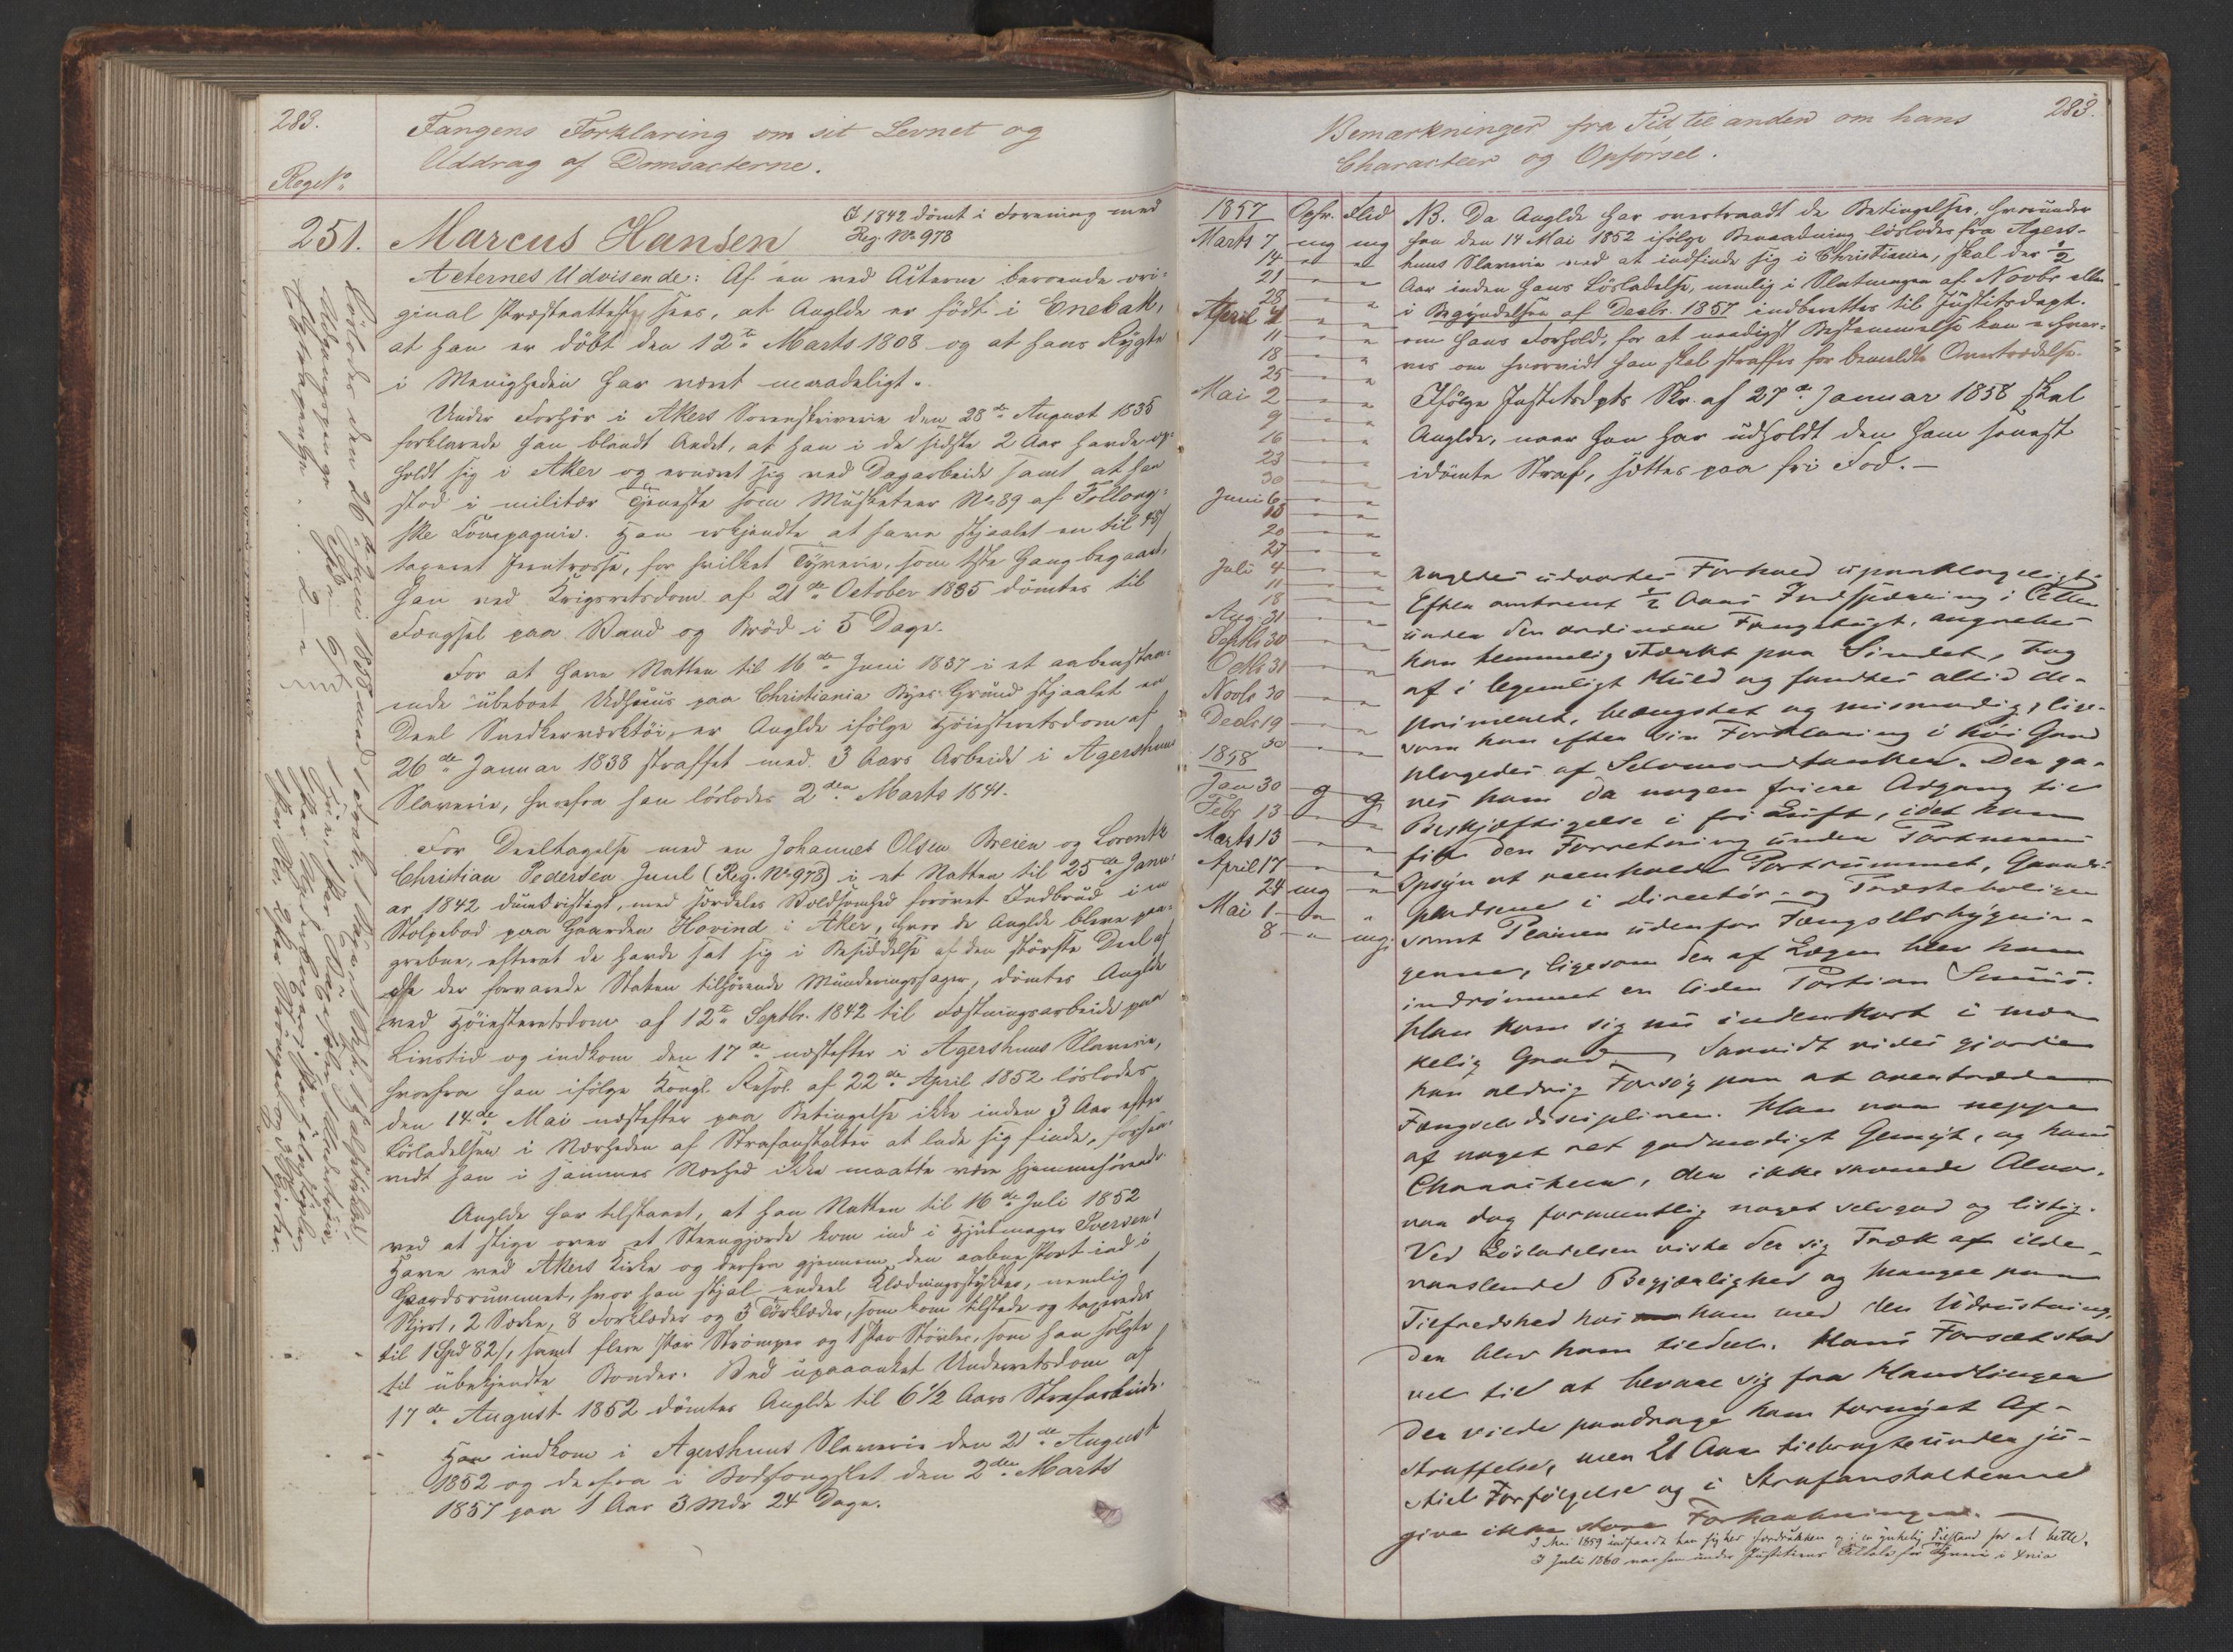 283.
Fangens Forklaring om sit Levnet og
Uddrag af Domsacterne.
Reg. No
251.
Marcus Hansen
I 1842 dömt i Forening med
Reg. No 978
Acternes Udvisende: Af en ved Acterne beroende ori-
ginal Præsteattest sees, at Anglde er födt i Enebak,
at han er döbt den 12te Marts 1808 og at hans Rygte
i Menigheden har været umaadeligt.
Under Forhör i Akers Sorenskriverie den 28de August 1835
forklarede han blandt Andet, at han i de sidste 2 Aar havde op-
holdt sig i Aker og ernæret sig ved Dagarbeide samt at han
stod i militær Tjeneste som Musketeer No 89 af Folloug-
ske Compagnie. Han erkjendte at have stjaalet en til 45 s
taxeret Jerntrosse, for hvilket Tyverie, som 1ste Gang begaaet,
han ved Krigsretsdom af 21de October 1835 dömtes til
Fængsel paa Vand og Bröd i 5 Dage.
For at have Natten til 16de Juni 1837 i et aabenstaa-
ende übeboet Udhuus paa Christiania Byes Grund stjaalet en
Deel Snedkerverktöi, er Anglde ifölge Höiesteretsdom af
26de Januar 1838 straffet med 3 Aars Arbeide i Agershuus
Slaverie, hvorfra han löslodes 2den Marts 1841.
For Deeltagelse med en Johannes Olsen Breien og Lorentz
Christian Pedersen Juul (Reg. No 978) i et Natten til 25de Janu-
ar 1842 dumdristigt, med særdeles Voldsomhed forövet Indbrud i en
Stolpebod paa Gaarden Hovind i Aker, hvor de Anglde bleve paa-
grebne, efterat de havde sat sig i Besiddelse af den störste Deel af
de der forvarede Staten tilhörende Munderingssager, dömtes Anglde
ved Höiesteretsdom af 12te Septbr. 1842 til Fæstningsarbeide paa
Livstid og indkom den 17de næstefter i Agershuus Slaverie,
hvorfra han ifölge Kongl. Resol. af 22de April 1852 löslodes
den 14de Mai næstefter paa Betingelse ikke inden 3 Aar efter
Lösladelsen i Nærheden af Strafanstalten at lade sig finde, forsaa-
vidt han i sammes Nærhed ikke maatte være hjemmehörende.
Anglde har tilstaaet, at han Natten til 16de Juli 1852
ved at stige over et Steengjerde kom ind i Hjulmager Iversens
Have ved Akers Kirke og derfra gjennem den aabne Port ind i
Gaardsrummet, hvor han stjal endeel Klædningsstykker, nemlig 1
Skjort, 2 Særke, 8 Forklæder og 3 Törklæder, som kom tilstede og taxeredes
til 1 Spd 82 s, samt flere Par Strömper og 1 Par Stövler, som han solgte
til übekjendte Bönder. Ved upaaanket Underretsdom af
17de August 1852 dömtes Anglde til 6 1/2 Aars Strafarbeide.
Han indkom i Agershuus Slaverie den 21de August
1852 og derfra i Bodsfængslet den 2den Marts
1857 paa 1 Aar 3 Mdr 24 Dage.
Löslodes den 26de Juni 1858 med
283.
Bemærkninger fra Tid til anden om hans
Characteer og Opförsel.
1857 Opfr. Flid
Marts 7 mg mg
14 " "
21 " "
28 " "
April 4 " "
11 " "
18 " "
25 " "
Mai 2 " "
9 " "
16 " "
23 " "
30 " "
Juni 6 " "
20 " "
27 " "
Juli 4 " "
11 " "
18 " "
Aug 31 " "
Septbr 30 " "
Octbr 31 " "
Novbr 30 " "
Decbr 19 " "
30 " "
1858
Jan 30 g g
Febr 13 " "
Marts 13 " "
April 17 " "
24 mg "
Mai 1 " "
8 " mg.
NB. Da Anglde har overtraadt de Betingelser, hvorunder
han den 14 Mai 1852 ifölge Benaadning löslodes fra Agers-
huus Slaverie ved at indfinde sig i Christiania, skal der 1/2
Aar inden hans Lösladelse, nemlig i Slutningen af Novbr eller
i Begyndelsen af Decbr. 1857 indberettes til Justitsdept.
om hans Forhold, for at naadigst Bestemmelse kan erhver-
ves om hvorvidt han skal straffes for bemeldte Overtrædelse.
Ifölge Justitsdpts Skr. af 27de Januar 1858 skal
Anglde, naar han har udholdt den ham senest
idömte Straf, sættes paa fri Fod. —
Angldes udvortes Forhold upaaklageligt.
Efter omtrent 1/2 Aars Indspærring i Cellen
under den ordinaire Fangetugt, angrebes
han temmelig stærkt paa Sindet, tog
af i legemligt Huld og fandtes altid de-
primeret, beængstet og mismodig, lige-
som han efter sin Forklaring i höi Grad
plagedes af Selvmordstanker. Der ga-
ves ham da nogen friere Adgang til
Beskjæftigelse i fri Luft, idet ham
fik den Forretning under Portnerens
Opsyn at reenholde Portrummet, Gaards-
pladsene i Directör- og Præsteboligen
samt Pladsen udenfor Fængselsbygnin-
gerne, ligesom der af Lægen blev ham
indrömmet en liden Portion Snuus.
Han kom sig nu inden kort i mær-
kelig Grad. Saavidt vides gjorde
han aldrig Forsög paa at overtræde
Fængselsdisciplinen. Han var neppe
af noget ret godmodigt Gemyt, og hans
Characteer, der ikke savnede Alvor,
var dog formentlig noget selvgod og listig.
Ved Lösladelsen viste der sig Træk af ilde-
varslende Begjærlighed og Mangel paa
Tilfredshed hos ham med den Udrustning,
der blev ham tildeelt. Hans Forsæt stod
vel til at bevare sig fra Handlinger
der vilde paadrage ham fornyet Af-
straffelse, men 21 Aar tilbragte under ju-
stiel Forfölgelse og i Strafanstalterne
give ikke store Forhaabninger. —
I Mai 1859 indfandt han sig her fordrukken og i en ynkelig Tilstand for at bettle.
I Juli 1860 var han under Justitiens Tiltale for Tyverie i Xnia